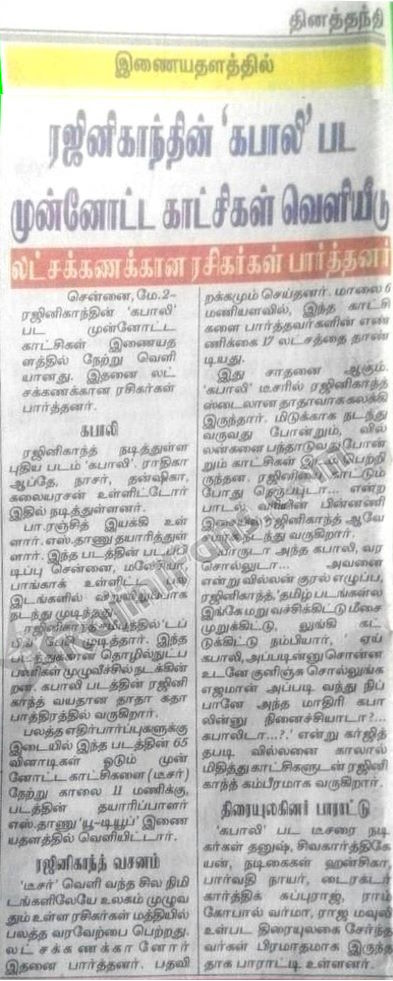 தினத்தந்தி
இணையதளத்தில்
ரஜினிகாந்தின் 'கபாலி' பட
முன்னோட்ட காட்சிகள் வெளியீடு
லட்சக்கணக்கான ரசிகர்கள் பார்த்தனர்
சென்னை,மே.2–
ரஜினிகாந்தின் 'கபாலி'
பட முன்னோட்ட
காட்சிகள் இணையத
ளத்தில் நேற்று வெளி
யானது. இதனை லட்
சக்கணக்கான ரசிகர்கள்
பார்த்தனர்.
கபாலி
ரஜினிகாந்த் நடித்துள்ள
புதிய படம் 'கபாலி'. ராதிகா
ஆப்தே, நாசர், தன்ஷிகா,
கலையரசன் உள்ளிட்டோர்
இதில் நடித்துள்ளனர்.
பா.ரஞ்சித் இயக்கி உள்
ளார். எஸ்.தாணு தயாரித்துள்
ளார். இந்த படத்தின் படப்பி
டிப்பு சென்னை, மலேசியா,
பாங்காக் உள்ளிட்ட பல
இடங்களில் விறுவிறுப்பாக
நடந்து முடிந்தது.
ரஜினிகாந்த் சமீபத்தில் 'டப்
பிங்' பேசி முடித்தார். இந்த
படத்துக்கான தொழில்நுட்ப
பணிகள் முழுவீச்சில் நடக்கின்
றன. கபாலி படத்தின் ரஜினி
காந்த் வயதான தாதா கதா
பாத்திரத்தில் வருகிறார்.
பலத்த எதிர்பார்ப்புகளுக்கு
இடையில் இந்த படத்தின் 65
வினாடிகள் ஓடும் முன்
னோட்ட காட்சிகளை (டீசர்)
நேற்று காலை 11 மணிக்கு,
படத்தின் தயாரிப்பாளர்
எஸ்.தாணு 'யூ–டியூப்' இணை
யதளத்தில் வெளியிட்டார்.
ரஜினிகாந்த் வசனம்
'டீசர்' வெளி வந்த சில நிமி
டங்களிலேயே உலகம் முழுவ
தும் உள்ள ரசிகர்கள் மத்தியில்
பலத்த வரவேற்பை பெற்றது.
லட் சக்கணக்கானோர்
இதனை பார்த்தனர். பதவி
றக்கமும் செய்தனர். மாலை 6
மணியளவில், இந்த காட்சி
களை பார்த்தவர்களின் எண்
ணிக்கை 17 லட்சத்தை தாண்
டியது.
இது சாதனை ஆகும்.
'கபாலி' டீசரில் ரஜினிகாந்த்
ஸ்டைலான தாதாவாக கலக்கி
இருந்தார். மிடுக்காக நடந்து
வருவது போன்றும், வில்
லன்களை பந்தாடுவது போன்
றும் காட்சிகள் இடம் பெற்றி
ருந்தன. ரஜினியை காட்டும்
போது நெருப்புடா... என்ற
பாடல் வரியின் பின்னணி
இசையில் ரஜினிகாந்த் ஆவே
சமாக நடந்து வருகிறார்.
யாருடா அந்த கபாலி, வர
சொல்லுடா... அவனை
என்று வில்லன் குரல் எழுப்ப,
ரஜினிகாந்த், 'தமிழ் படங்கள்ல
இங்கே மரு வச்சிக்கிட்டு மீசை
முறுக்கிட்டு, லுங்கி கட்
டுக்கிட்டு நம்பியார், ' ஏய்
கபாலி, அப்படின்னு சொன்ன
உடனே குனிஞ்சு சொல்லுங்க
எஜமான் அப்படி வந்து நிப்
பானே அந்த மாதிரி கபா
லின்னு நினைச்சியாடா?...
கபாலிடா...?.' என்று கர்ஜித்
தபடி வில்லனை காலால்
மிதித்து காட்சிகளுடன் ரஜினி
காந்த் கம்பீரமாக வருகிறார்.
திரையுலகினர் பாராட்டு
'கபாலி' பட டீசரை நடி
கர்கள் தனுஷ், சிவகார்த்திகே
யன், நடிகைகள் ஹன்சிகா,
பார்வதி நாயர், டைரக்டர்
கார்த்திக் சுப்புராஜ், ராம்
கோபால் வர்மா, ராஜ மவுலி
உள்பட திரையுலகை சேர்ந்த
வர்கள் பிரமாதமாக இருந்த
தாக பாராட்டி உள்ளனர்.